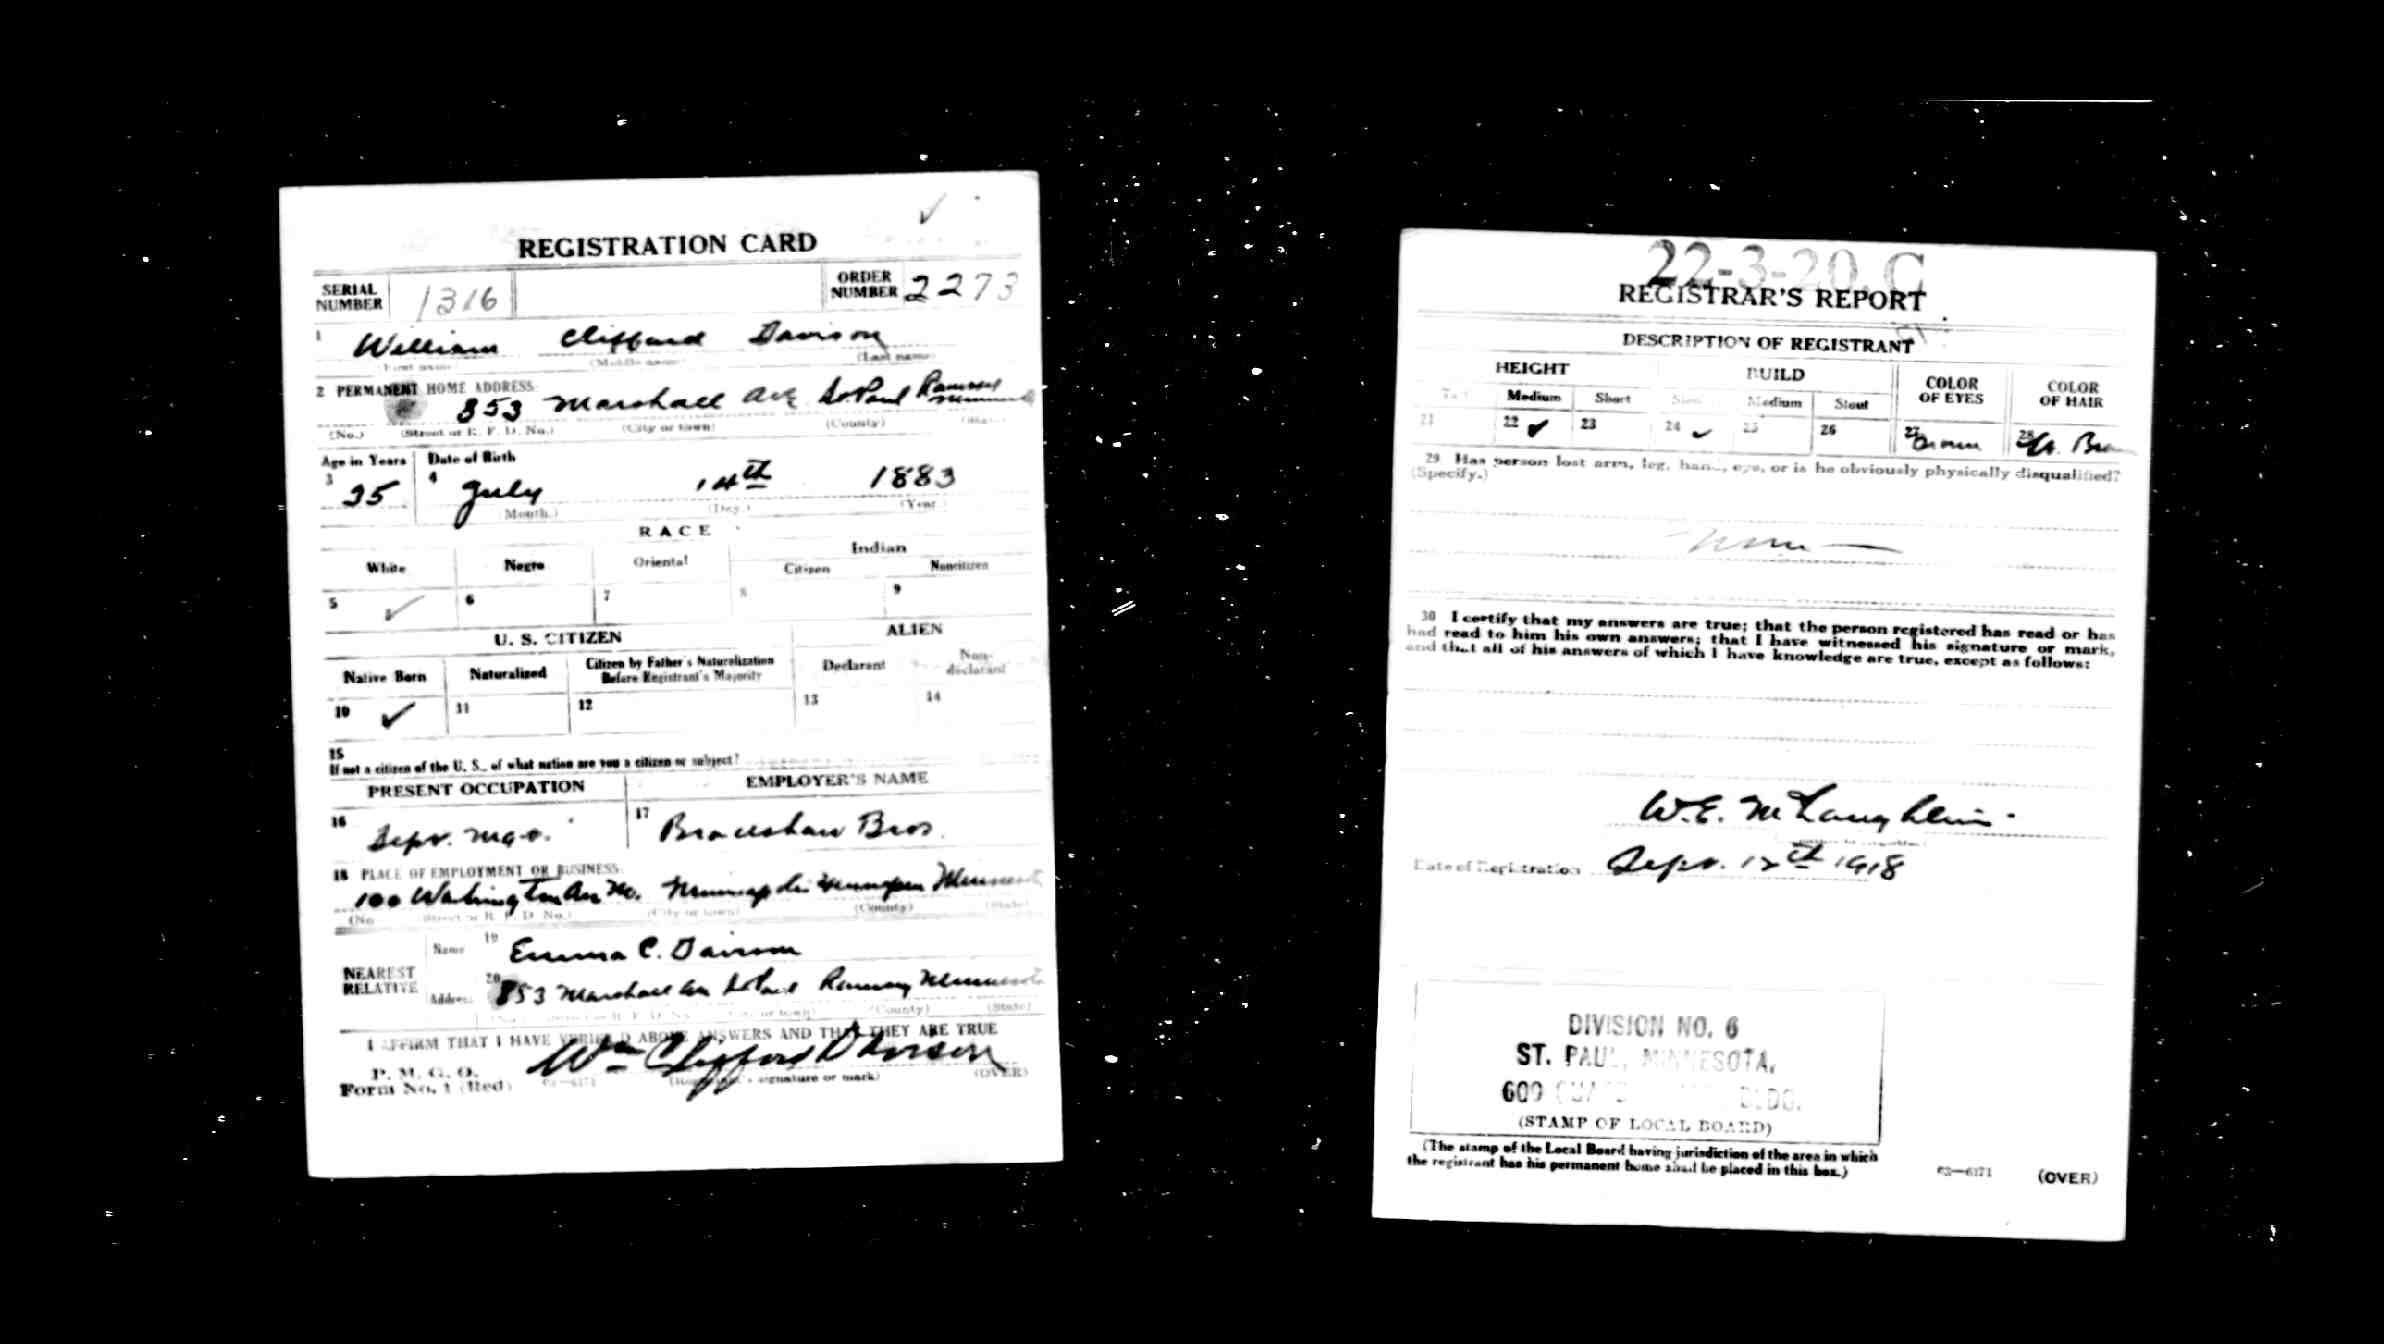 REGISTRATION CARD
SERIAL NUMBER 1316 ORDER NUMBER 2273
1 William Clifford Davison
(First name) (Middle name) (Last name)
2 PERMANENT HOME ADDRESS:
853 Marshall Ave St Paul Ramsey
(No.) (Street or R. F. D. No.) (City or town) (County) (State)
Age in Years Date of Birth
3 35 4 July 14th 1883
(Month.) (Day.) (Year.)
RACE
White Negro Oriental Indian
Citizen Noncitizen
5 ✓ 6 7 8 9
U. S. CITIZEN ALIEN
Native Born Naturalized Citizen by Father's Naturalization Before Registrant's Majority Declarant Non-declarant
10 ✓ 11 12 13 14
15
If not a citizen of the U. S., of what nation are you a citizen or subject?
PRESENT OCCUPATION EMPLOYER'S NAME
16 Dept. Mgr. 17 Bradshaw Bros.
18 PLACE OF EMPLOYMENT OR BUSINESS:
100 Washington Av No. Minneapolis Hennepin Minnesota
(No.) (Street or R. F. D. No.) (City or town) (County) (State)
NEAREST RELATIVE
Name 19 Emma C. Davison
Address 20 853 Marshall Av St Paul Ramsey Minnesota
(No.) (Street or R. F. D. No.) (City or town) (County) (State)
I AFFIRM THAT I HAVE VERIFIED ABOVE ANSWERS AND THAT THEY ARE TRUE
P. M. G. O.
Form No. 1 (Red) 03—6171 (Registrant's signature or mark) (OVER)
Wm Clifford Davison
22-3-20. C
REGISTRAR'S REPORT
DESCRIPTION OF REGISTRANT
HEIGHT BUILD COLOR OF EYES COLOR OF HAIR
Tall Medium Short Slender Medium Stout
21 22 ✓ 23 24 ✓ 25 26 27 Brown 28
29 Has person lost arm, leg, hand, eye, or is he obviously physically disqualified?
(Specify.)
None
30 I certify that my answers are true; that the person registered has read or has
had read to him his own answers; that I have witnessed his signature or mark,
and that all of his answers of which I have knowledge are true, except as follows:
W. E. McLaughlin
Date of Registration Sept. 12th 1918
DIVISION NO. 6
ST. PAUL, MINNESOTA,
609 BLDG.
(STAMP OF LOCAL BOARD)
(The stamp of the Local Board having jurisdiction of the area in which
the registrant has his permanent home shall be placed in this box.)
03—6171 (OVER)